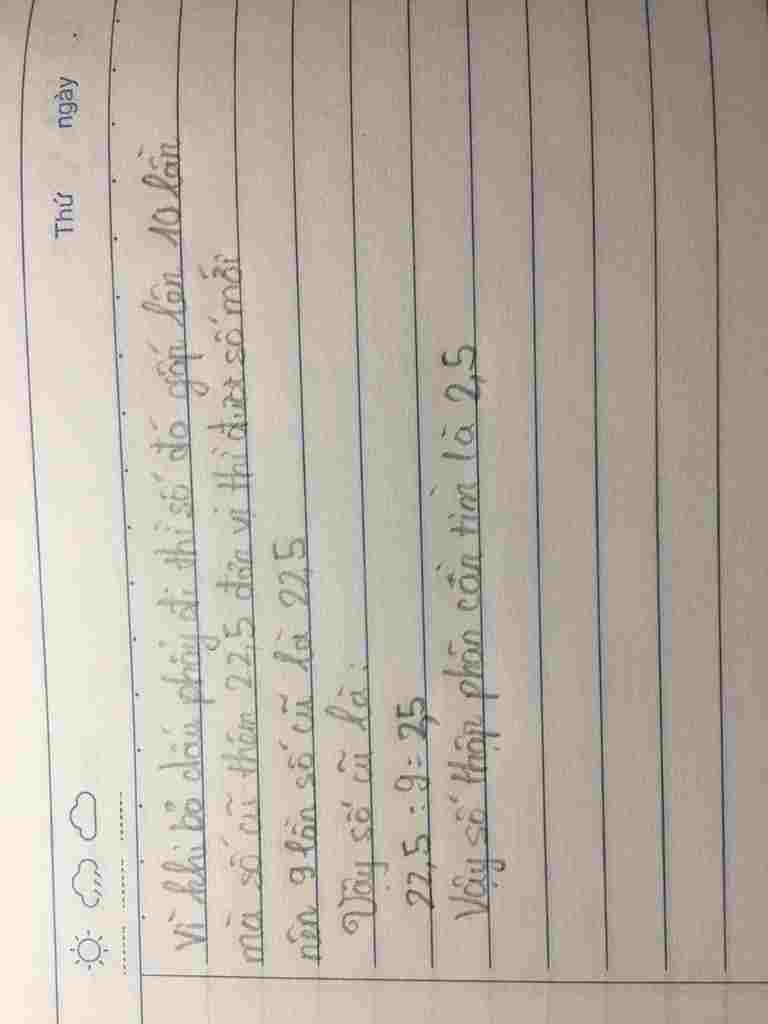 Thứ ngày
Vì khi bỏ dấu phẩy đi thì số đó gấp lên 10 lần
mà số cũ thêm 22,5 đơn vị thì được số mới
nên 9 lần số cũ là 22,5
Vậy số cũ là:
22,5 : 9 = 2,5
Vậy số thập phân cần tìm là 2,5